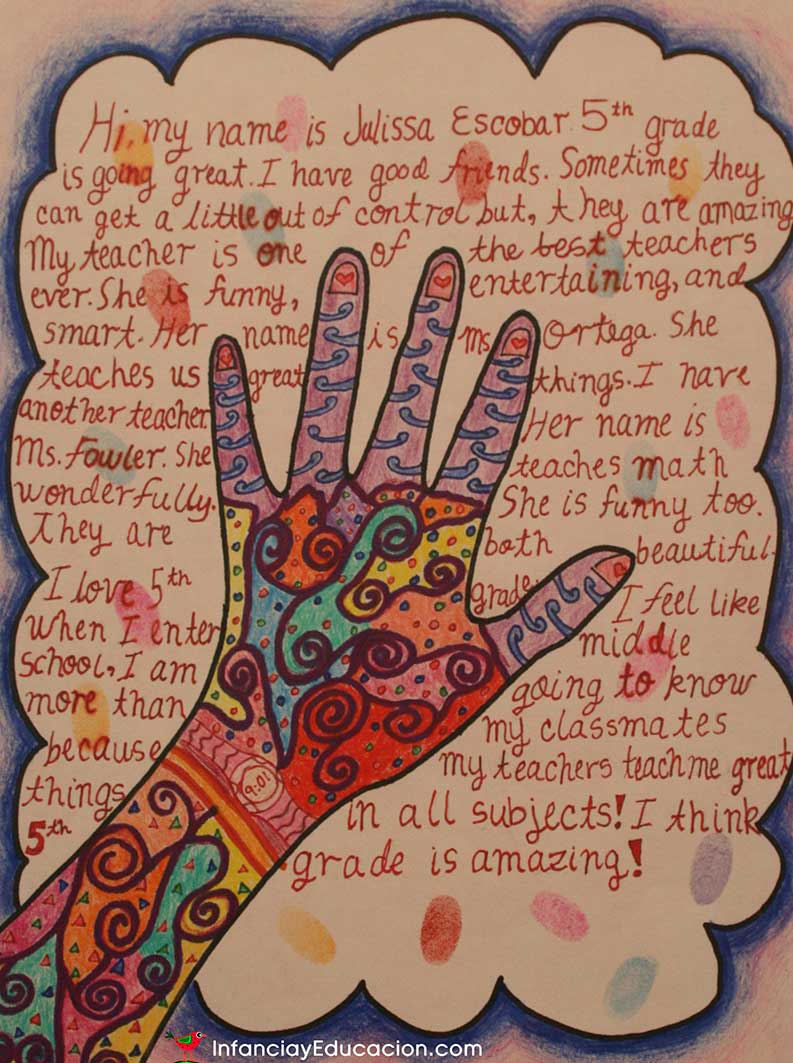 Hi, my name is Julissa Escobar. 5th grade
is going great. I have good friends. Sometimes they
can get a little out of control but, they are amazing
My teacher is one of the best teachers
ever. She is funny, entertaining, and
smart. Her name is Ms. Ortega. She
teaches us great things. I have
another teacher. Her name is
Ms. Fowler. She teaches math
wonderfully. She is funny too.
They are both beautiful.
I love 5th grade.
When I enter I feel like
school, I am middle
more than going to know
because my classmates
things my teachers teach me great
5th in all subjects! I think
grade is amazing!
9:01
InfanciayEducacion.com